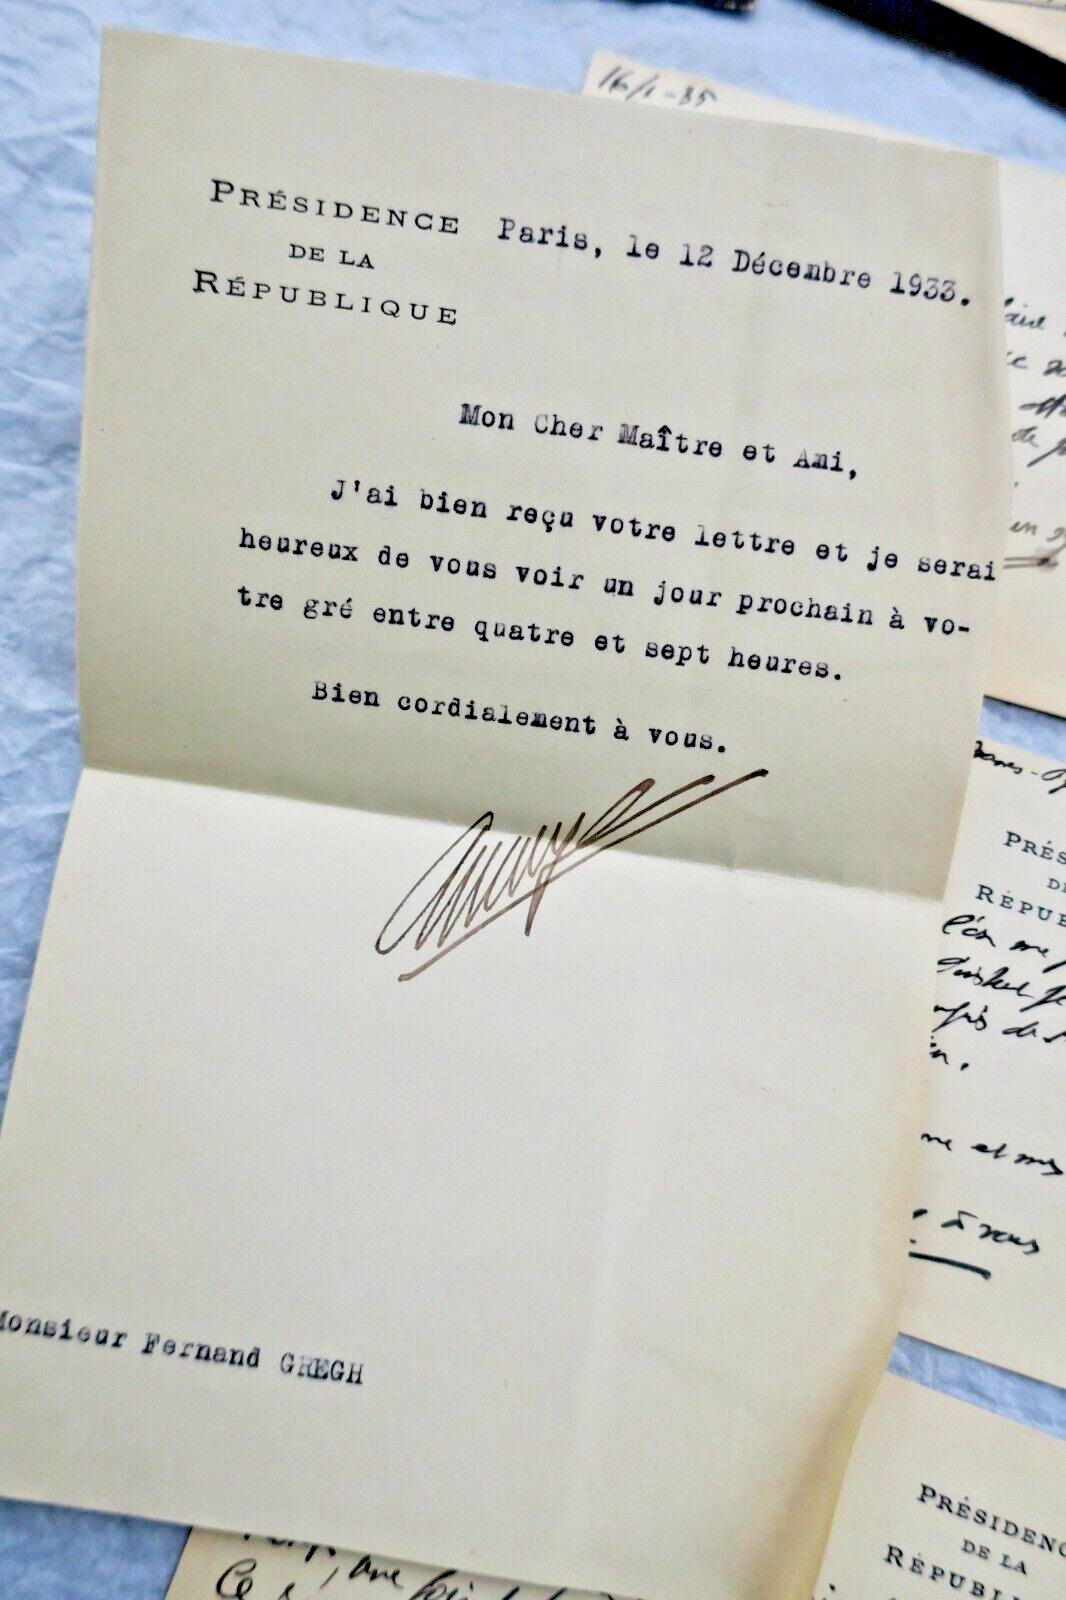 16/1-35
PRÉSIDENCE
DE LA
RÉPUBLIQUE
Paris, le 12 Décembre 1933.
Mon Cher Maître et Ami,
J'ai bien reçu votre lettre et je serai
heureux de vous voir un jour prochain à vo-
tre gré entre quatre et sept heures.
Bien cordialement à vous.
Monsieur Fernand GREGH
PRÉS
DE
RÉPUB
l'on me
de
et mes
à vous
PRÉSIDENC
DE LA
RÉPUBLI
une fois
Ce